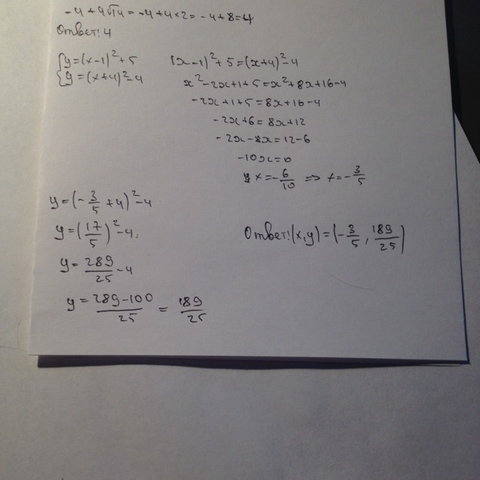 -4+4√4=-4+4×2=-4+8=4
Ответ: 4
{y=(x-1)²+5
{y=(x+4)²-4
(x-1)²+5=(x+4)²-4
x²-2x+1+5=x²+8x+16-4
-2x+1+5=8x+16-4
-2x+6=8x+12
-2x-8x=12-6
-10x=6
x=-6/10 => x=-3/5
y=(-3/5+4)²-4
y=(17/5)²-4
y=289/25-4
y=289-100/25=189/25
Ответ: (x,y)=(-3/5, 189/25)